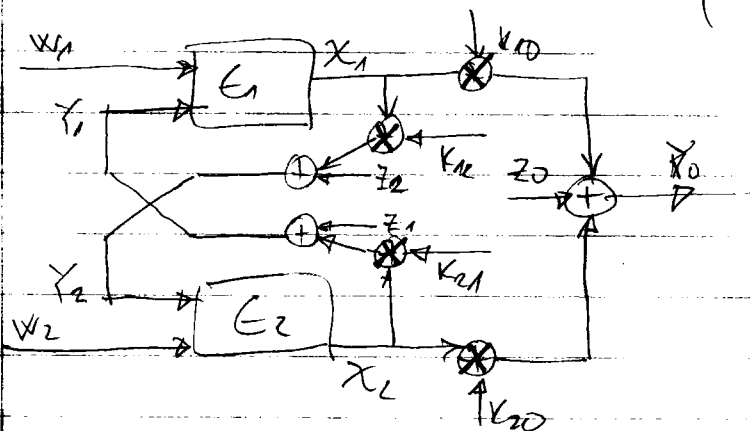 W1
X1
K10
E1
Y1
K12
Z2
Z0
Y0
Z1
K21
Y2
E2
W2
X2
K20